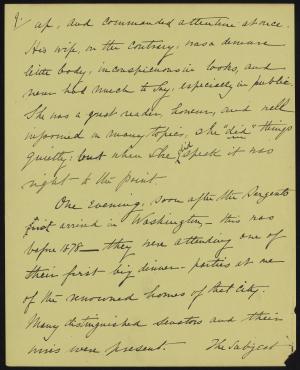 9.
up, and commanded attention at once.
His wife, on the contrary, was a demure
little body, inconspicuous in looks, and
never had much to say, especially in public.
She was a great reader, however, and well
informed on many topics, she "did" things
quietly; but when she did speak it was
right to the point.
One evening, soon after the Sargents
first arrived in Washington - this was
before 1878 - they were attending one of
their first big dinner-parties at one
of the renowned homes of that City.
Many distinguished senators and their
wives were present. The subject